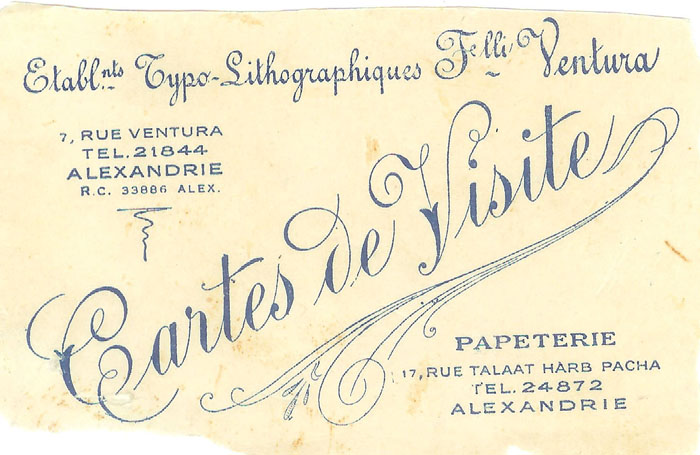 Etabl.nts Typo-Lithographiques Felli Ventura
7, RUE VENTURA
TEL. 21844
ALEXANDRIE
R.C. 33886 ALEX.
Cartes de Visite
PAPETERIE
17, RUE TALAAT HARB PACHA
TEL. 24872
ALEXANDRIE